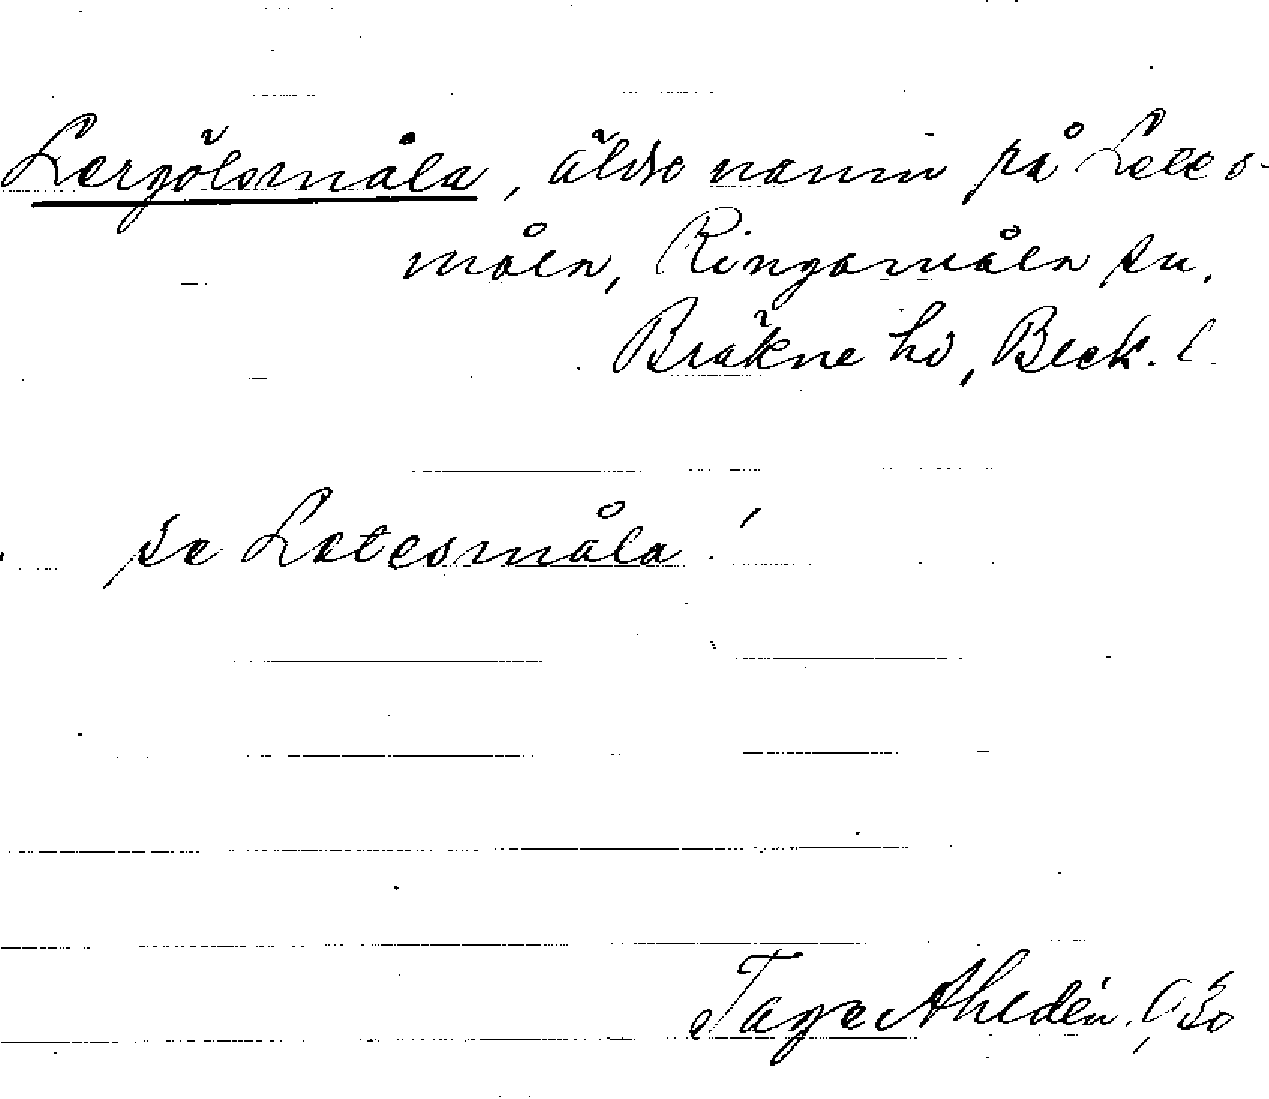 Lergölsmåla, äldre namn på Letes-
måla, Ringamåla sn.
Bräkne hd, Blek. l.
se Letesmåla!
Tage Ahldén, 930